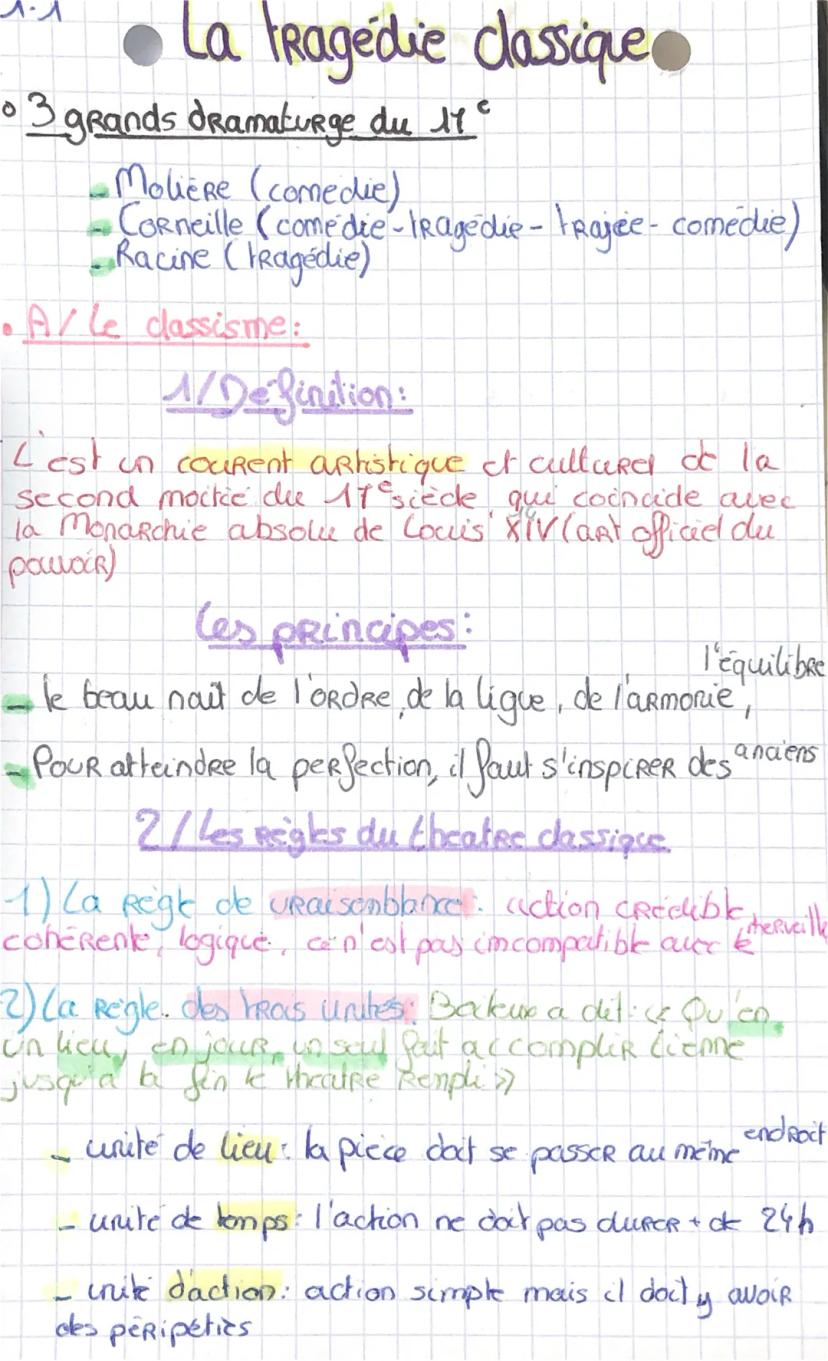 1.1
La tragédie classique
3 grands dramaturge du 17e
- Molière (comedie)
- Corneille (comédie - tragédie - trajée - comédie)
- Racine (tragédie)
• A/ Le classisme:
1/ Définition:
L'est un courent artistique et culturel de la
second moitié du 17e siècle qui coincide avec
la Monarchie absolu de Louis XIV (art officiel du
pouvoir)
Les principes:
- le beau nait de l'ordre, de la ligue, de l'armonie, l'équilibre
- Pour atteindre la perfection, il faut s'inspirer des anciens
2/ Les règles du theatre classique
1) La règle de vraisenblance: action crédible,
cohérente, logique, ce n'est pas imcompatible avec le merveille
2) La règle des trois unités: Boileux a dit: « Qu'en
un lieu, en jour, un seul fait accomplir tienne
jusqu'à la fin le theatre rempli »
- unité de lieu: la pièce doit se passer au même endroit
- unité de temps: l'action ne doit pas durer + de 24h
- unité d'action: action simple mais il doit y avoir
des péripéties